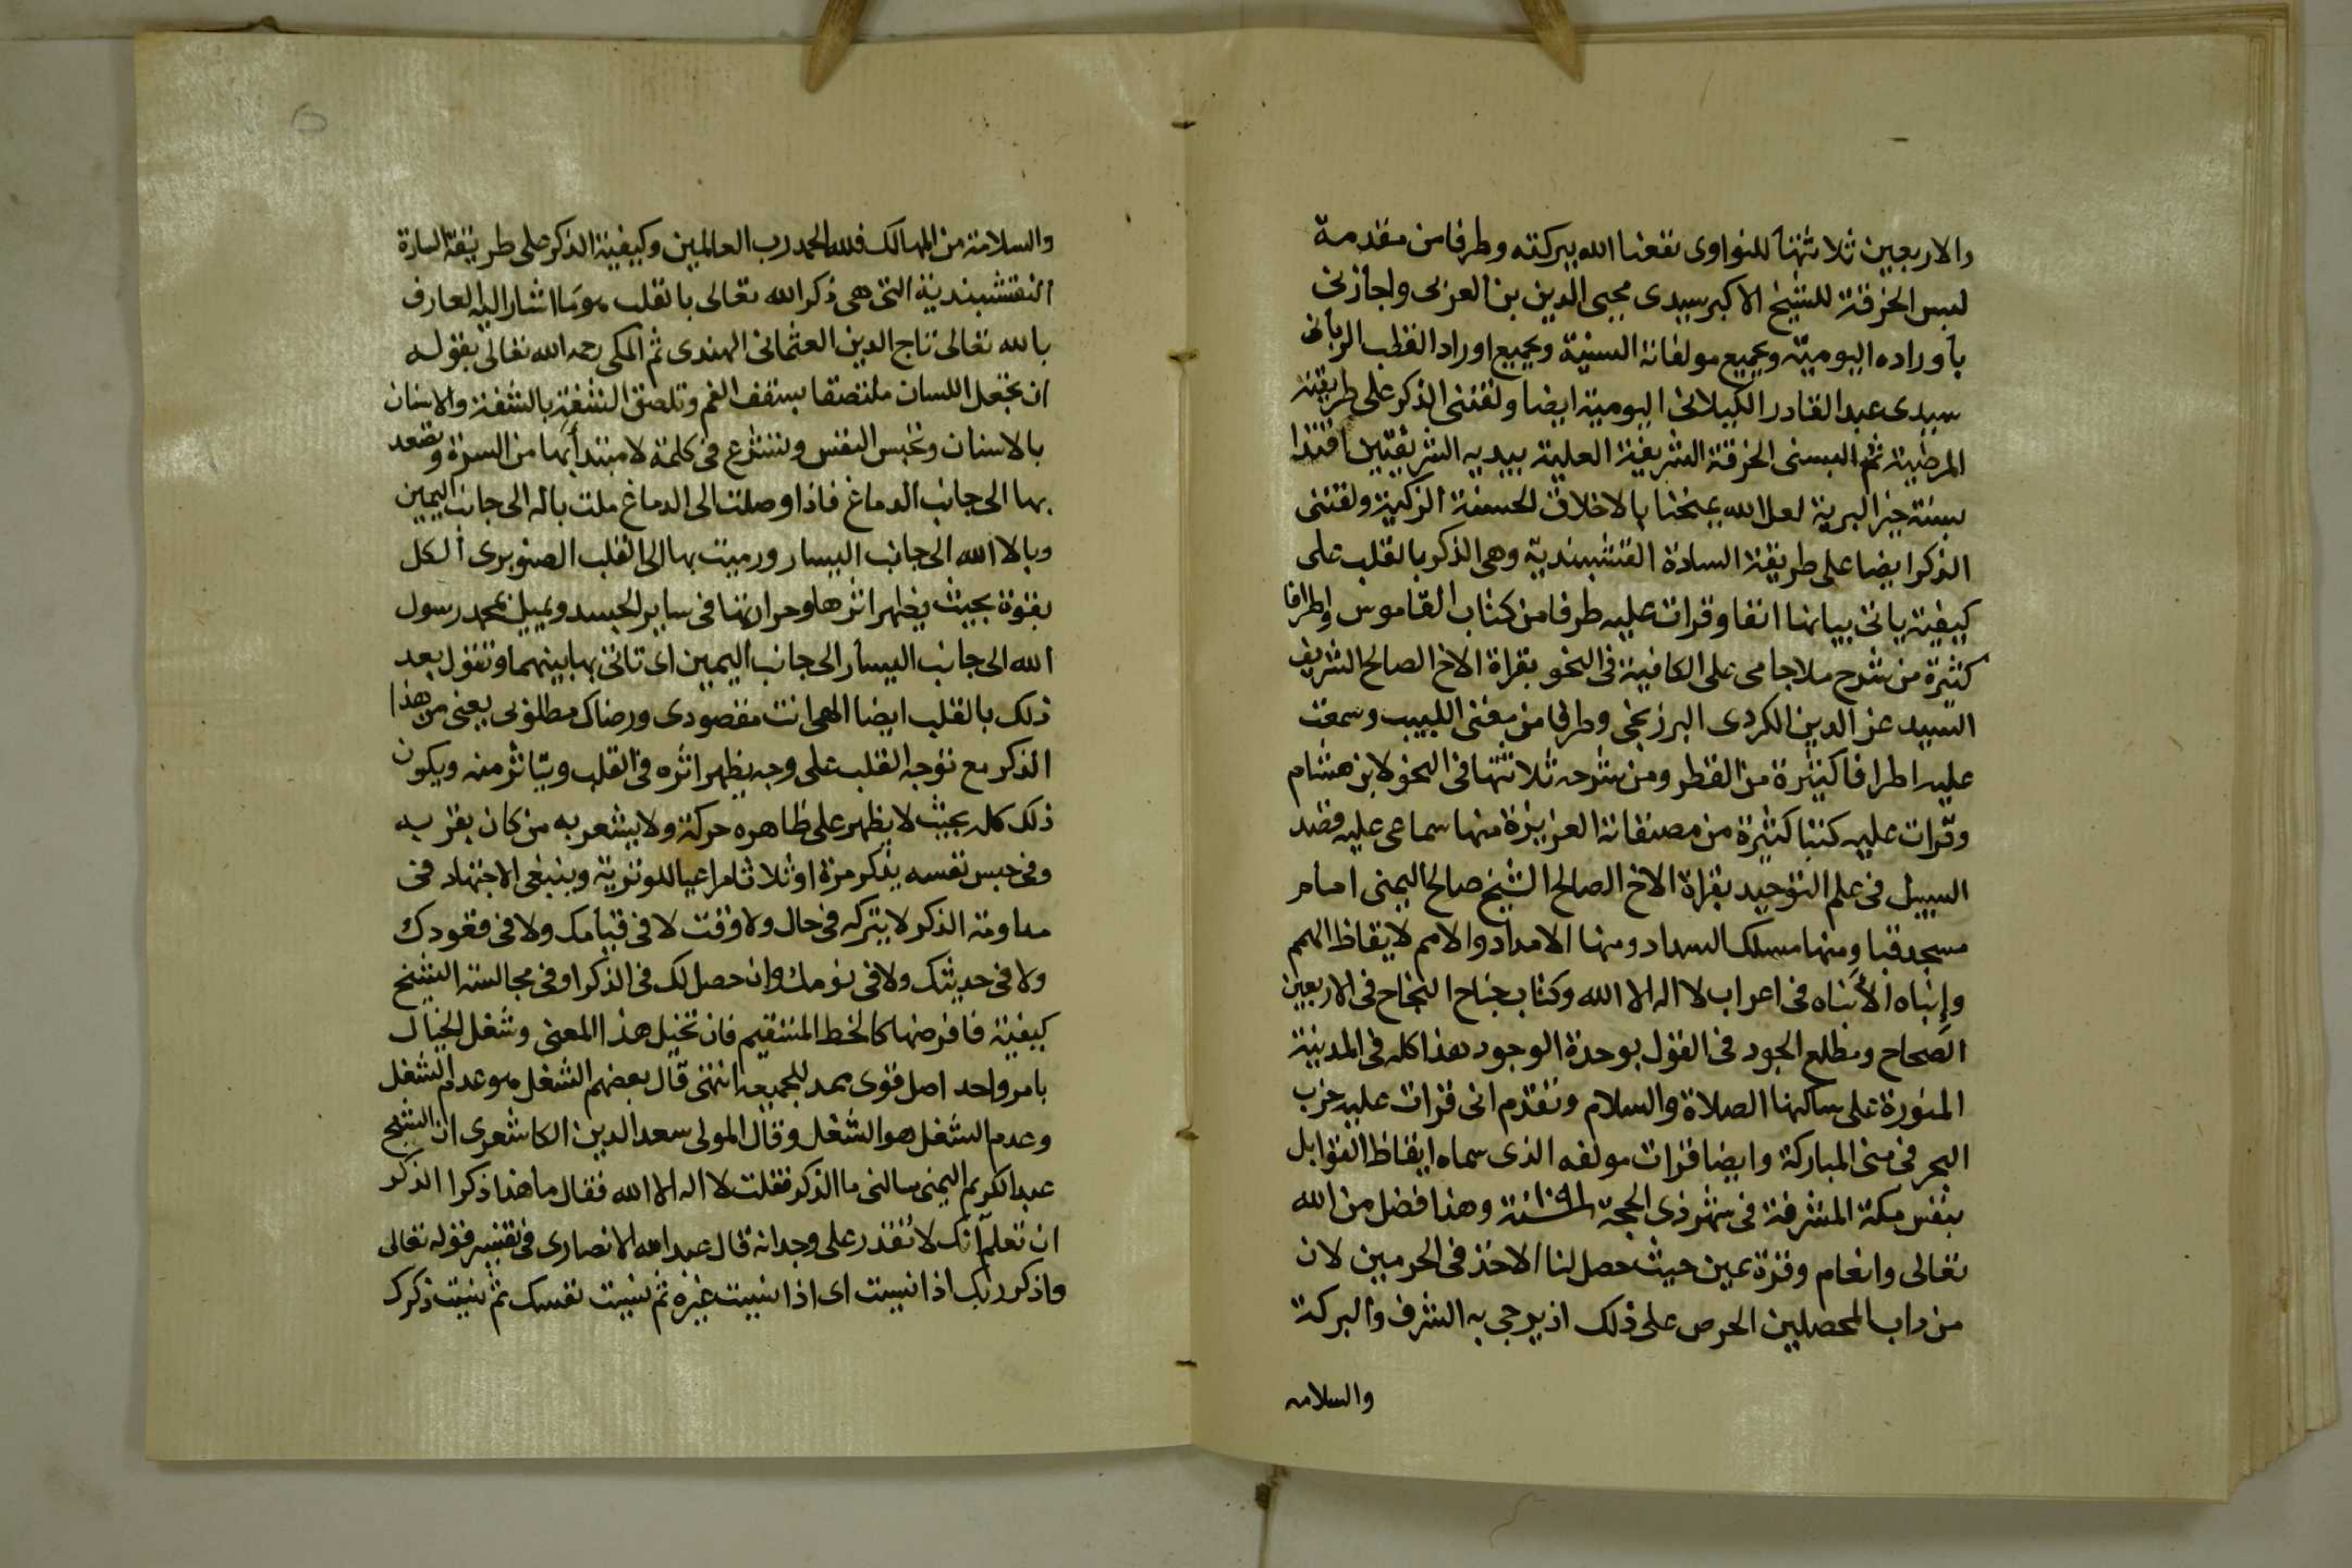 والاربعين ثلاثتها للنواوى نفعنا الله ببركته وطرفا من مقدمة
لبس الخرقة للشيخ الاكبر سيدى محيى الدين بن العربى واجازنى
باوراده اليومية وبجميع مولفاته السنية وبجميع اوراد القطب الربانى
سيدى عبد القادر الكيلانى اليومية ايضا ولقننى الذكر على طريقته
المرضية ثم البسنى الخرقة الشريفة العلية بيديه الشريفتين اقتدا
بسنة خير البرية لعل الله يمنحنا بالاخلاق الحسنة الزكية ولقننى
الذكر ايضا على طريقة السادة النقشبندية وهى الذكر بالقلب على
كيفية ياتى بيانها انفا وقرات عليه طرفا من كتاب القاموس واطرافا
كثيرة من شرح ملا جامى على الكافية فى النحو بقراة الاخ الصالح الشريف
السيد عز الدين الكردى البرزنجى وطرفا من مغنى اللبيب وسمعت
عليه اطرافا كثيرة من القطر ومن شرحه ثلاثتها فى النحو لابن هشام
وقرات عليه كتبا كثيرة من مصنفاته العزيزة منها سماعى عليه قصد
السبيل فى علم التوحيد بقراة الاخ الصالح الشيخ صالح اليمنى امام
مسجد قبا ومنها مسلك السداد ومنها الامداد والامم لايقاظ الهمم
وإنباه الأنباه فى اعراب لا اله الا الله وكتاب جناح النجاح فى الاربعين
الصحاح ومطلع الجود فى القول بوحدة الوجود هذا كله فى المدينة
المنورة على ساكنها الصلاة والسلام وتقدم انى قرات عليه حزب
البحر فى منى المباركة وايضا قرات مولفه الذى سماه ايقاظ القوابل
بنفس مكة المشرفة فى شهر ذى الحجة سنة وهذا فضل من الله
تعالى وانعام وقرة عين حيث حصل لنا الاخذ فى الحرمين لان
من داب المحصلين الحرص على ذلك اذ يرجى به الشرف والبركة
والسلامه
والسلامة من المهالك فلله الحمد رب العالمين وكيفية الذكر على طريقة السادة
النقشبندية التى هى ذكر الله تعالى بالقلب هو ما اشار اليه العارف
بالله تعالى تاج الدين العثمانى الهندى ثم المكى رحمه الله تعالى بقوله
ان تجعل اللسان ملتصقا بسقف الفم وتلصق الشفة بالشفة والاسنان
بالاسنان وتحبس النفس وتشرع فى كلمة لا مبتدأ بها من السرة وتصعد
بها الى جانب الدماغ فاذا وصلت الى الدماغ ملت باله الى جانب اليمين
وبالا الله الى جانب اليسار ورميت بها الى القلب الصنوبرى الكل
بقوة بحيث يظهر اثرها وحرارتها فى ساير الجسد ويميل بمحمد رسول
الله الى جانب اليسار الى جانب اليمين اى تاتى بها بينهما وتقول بعد
ذلك بالقلب ايضا الهى انت مقصودى ورضاك مطلوبى يعنى من هذا
الذكر مع توجه القلب على وجه يظهر اثره فى القلب ويتاثر منه ويكون
ذلك كله بحيث لا يظهر على ظاهره حركة ولا يشعر به من كان بقربه
وفى حبس نفسه يذكر مرة او ثلاثا مراعيا للوترية وينبغى الاجتهاد فى
مداومة الذكر لا يتركه فى حال ولا وقت لا فى قيامك ولا فى قعودك
ولا فى حديثك ولا فى نومك وان حصل لك فى الذكر او فى مجالسة الشيخ
كيفية فافرضها كالخط المستقيم فان تخيل هذا المعنى وشغل الخيال
بامر واحد اصل قوى ممد للجميعه انتهى قال بعضهم الشغل هو عدم الشغل
وعدم الشغل هو الشغل وقال المولى سعد الدين الكاشغرى ان الشيخ
عبد الكريم اليمنى سالنى ما الذكر فقلت لا اله الا الله فقال ما هذا ذكرا الذكر
ان تعلم انك لا تقدر على وجدانه قال عبد الله الانصارى فى تفسير قوله تعالى
واذكر ربك اذا نسيت اى اذا نسيت غيره ثم نسيت نفسك ثم نسيت ذكرك